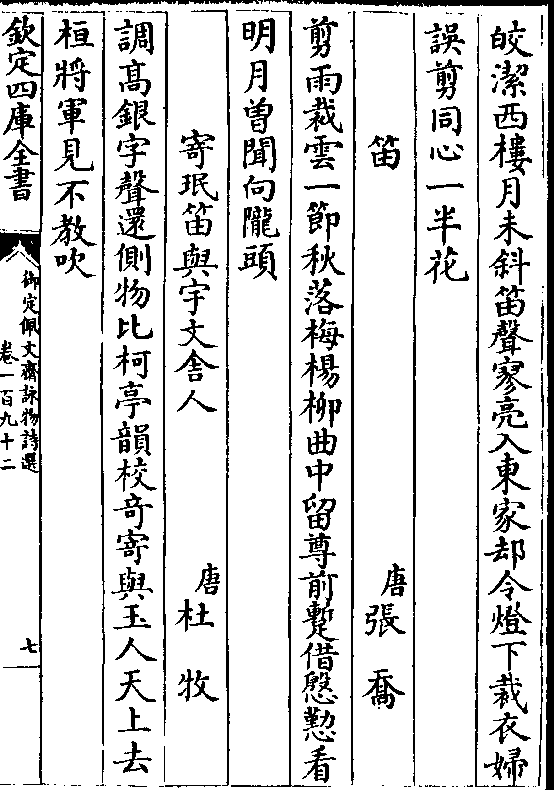 皎潔西樓月未斜笛聲寥亮入東家却令燈下裁衣婦
誤剪同心一半花
笛　唐張喬
剪雨裁雲一節秋落梅楊柳曲中留尊前暫借慇懃看
明月曽聞向隴頭
寄珉笛與宇文舎人　唐杜牧
調髙銀字聲還側物比柯亭韻校竒寄與玉人天上去
桓將軍見不教吹
欽定四庫全書
御定佩文齋詠物詩選
卷一百九十二
七